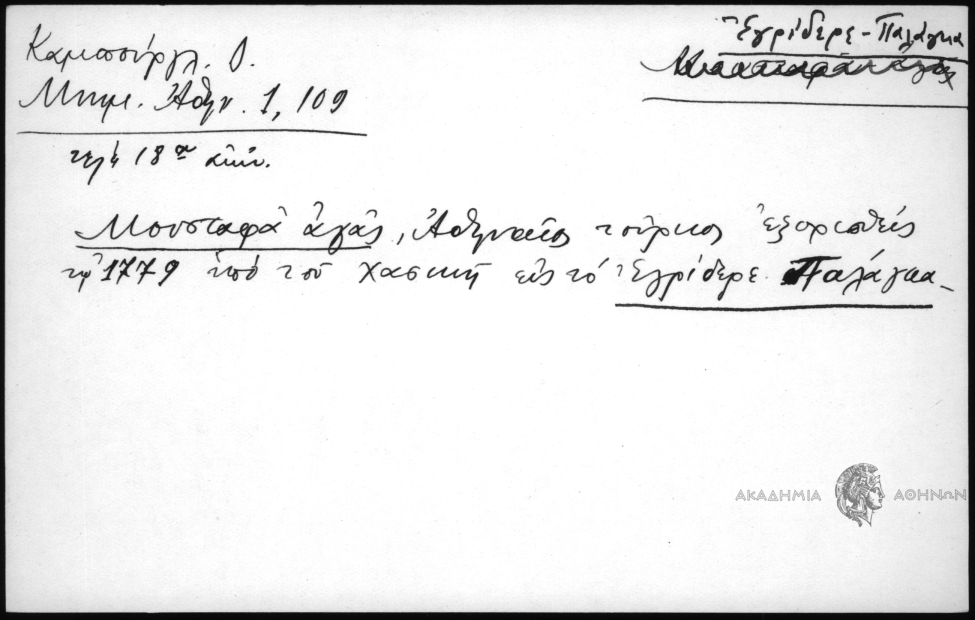 Καμπούργλ. Δ.
Μνημ. Ἀθην. 1, 109
τέλη 18ου αἰών.
Ἐγρίδερε - Παλάγκα
Μουσταφᾶ ἀγᾶς
Μουσταφᾶ ἀγᾶς, Ἀθηναῖος τοῦρκος ἐξορισθείς
τῷ 1779 ὑπό τοῦ Χασεκῆ εἰς τό Ἐγρίδερε Παλάγκα_
ΑΚΑΔΗΜΙΑ ΑΘΗΝΩΝ